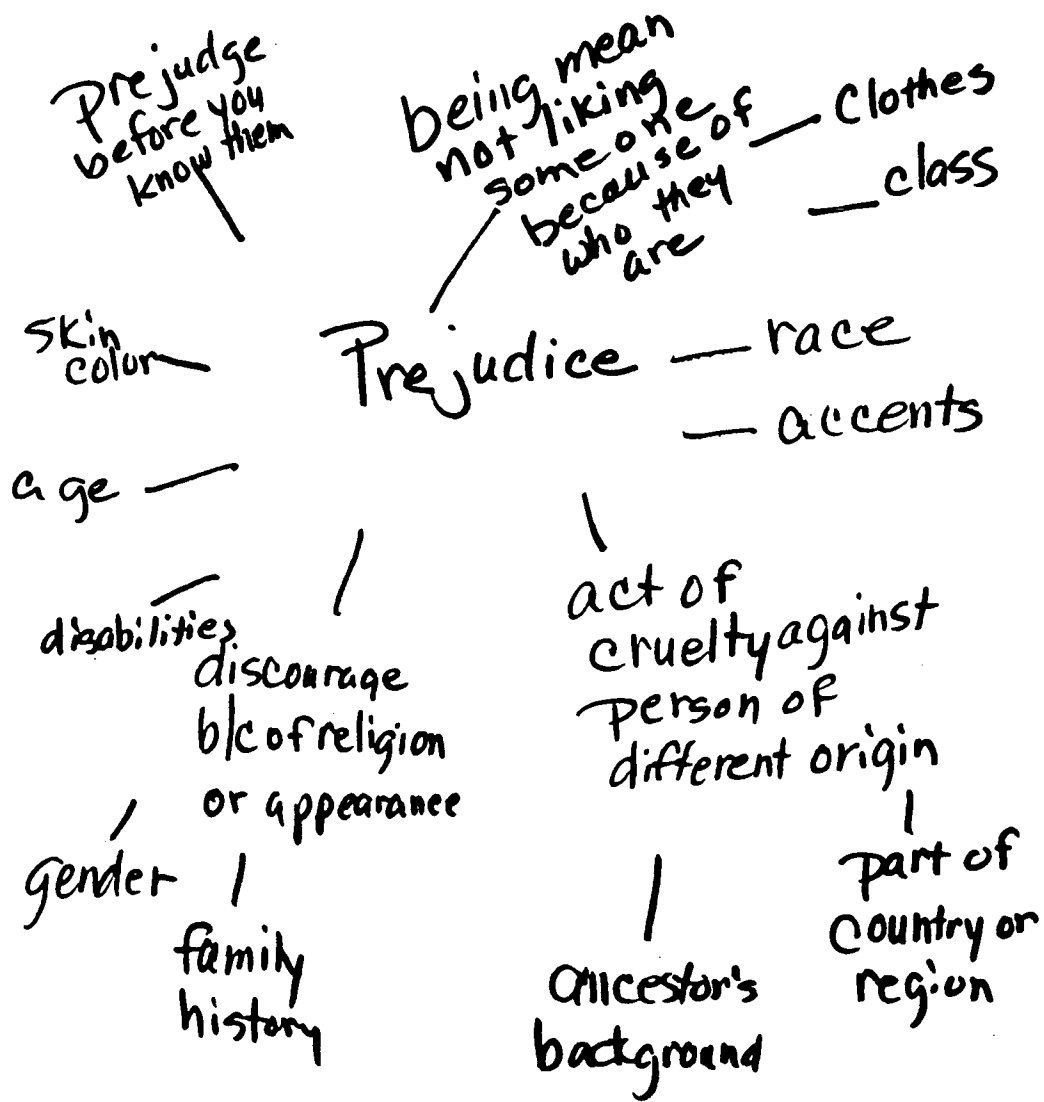 Prejudge
before you
know them
being mean
not liking
someone
because of
who they
are
Clothes
class
skin
color
Prejudice
race
accents
age
disabilities
discourage
b/c of religion
or appearance
act of
cruelty against
person of
different origin
gender
family
history
ancestor's
background
part of
country or
region